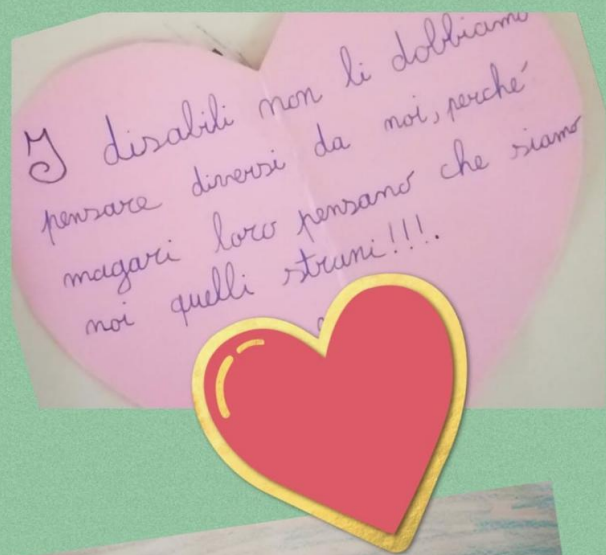 I disabili non li dobbiamo
pensare diversi da noi, perché
magari loro pensano che siamo
noi quelli strani!!!.